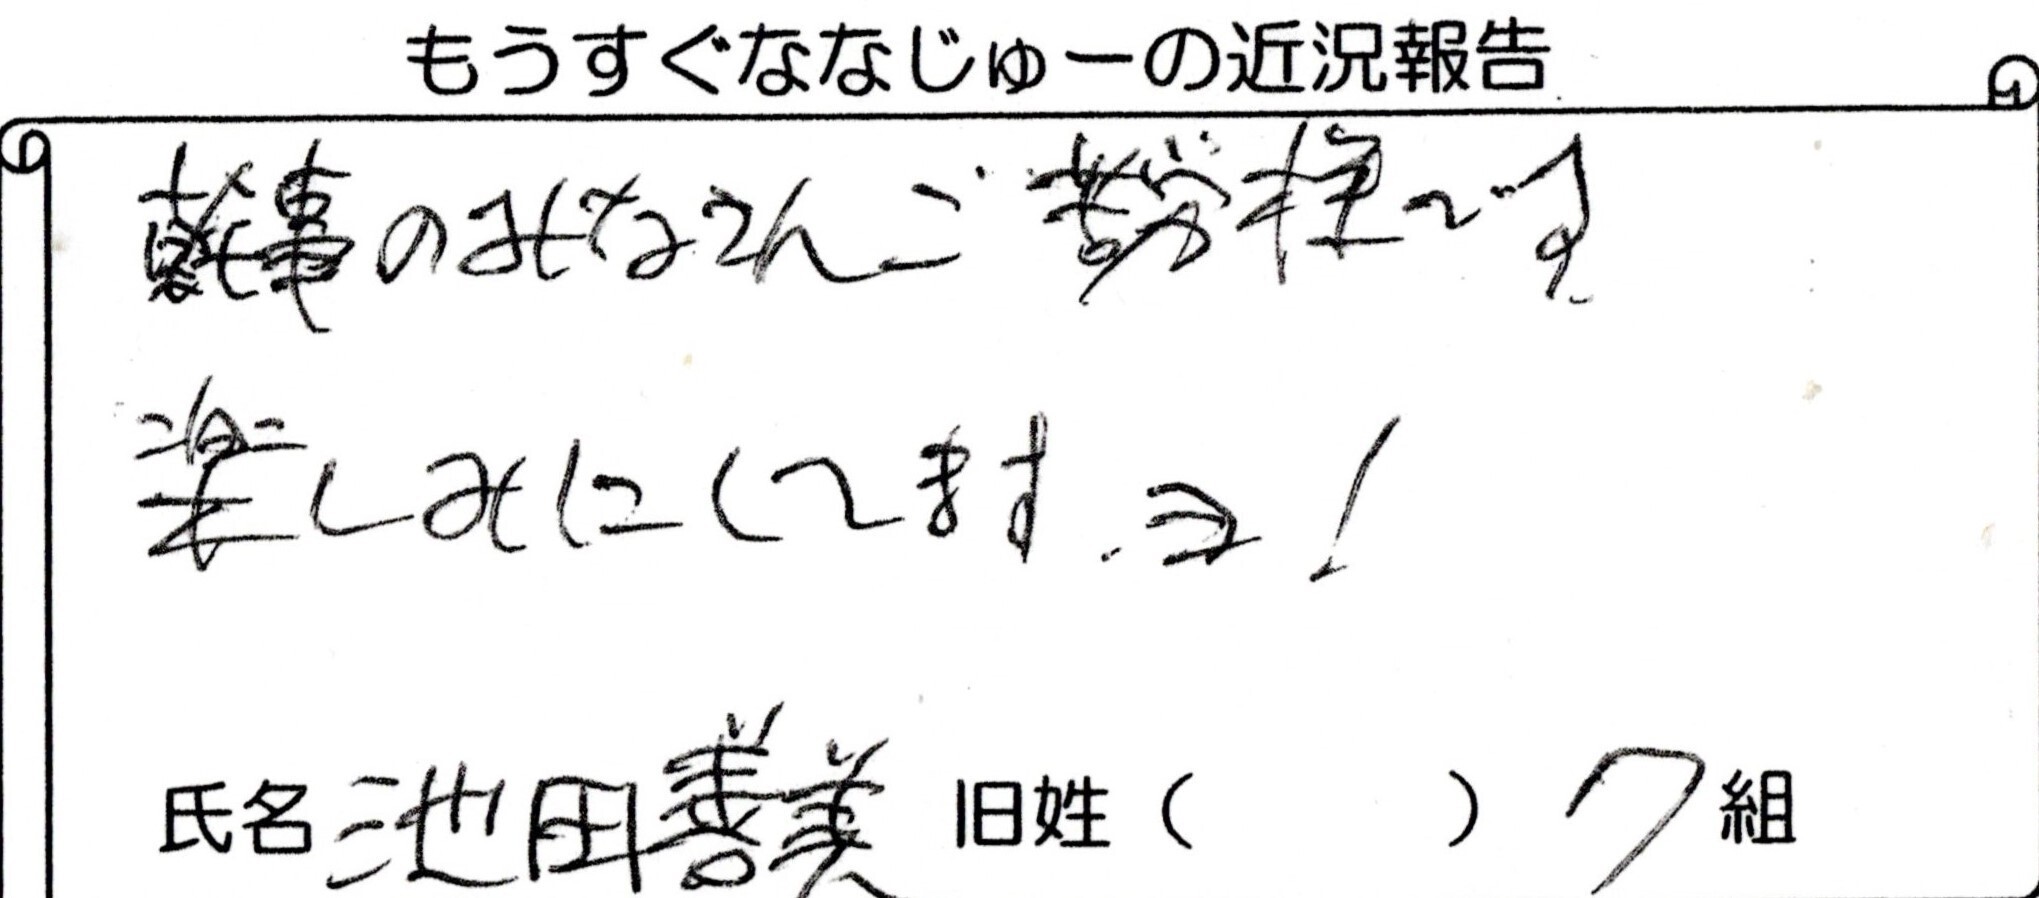 もうすぐななじゅーの近況報告
幹事のみなさんご苦労様です
楽しみにしてます。ヨ!
氏名 池田善美 旧姓( ) 7組